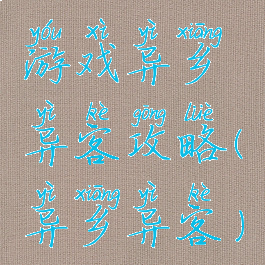 yóu xì yì xiāng
游戏异乡
yì kè gōng lüè
异客攻略(
yì xiāng yì kè
异乡异客)